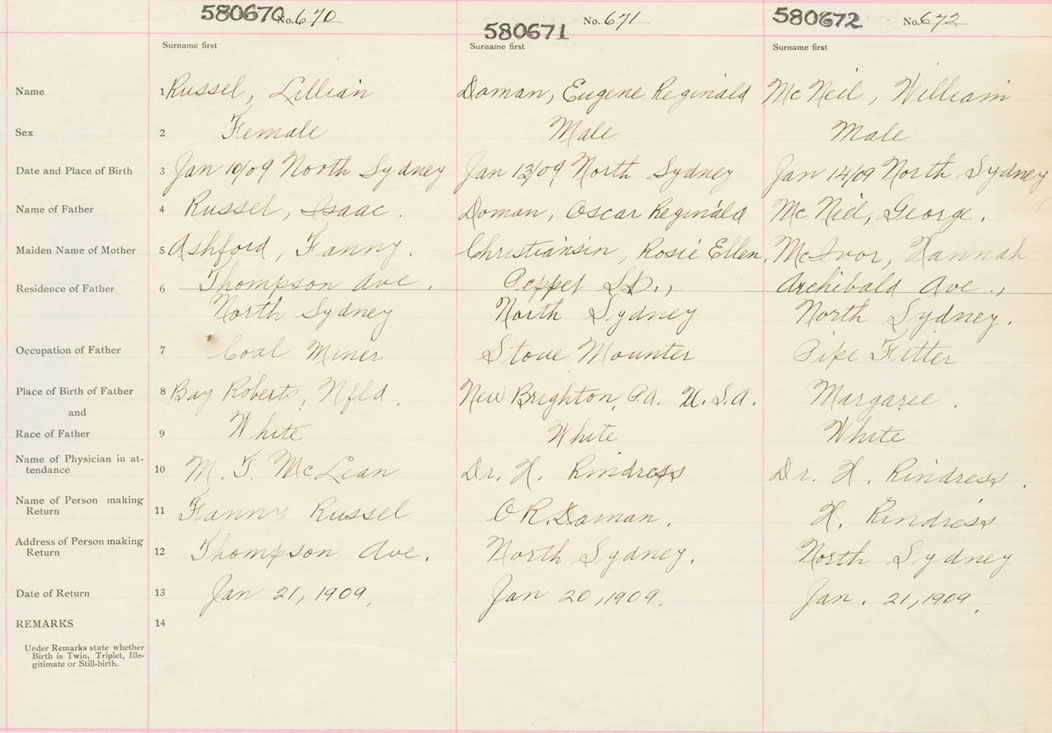 580670 No. 670 580671 No. 671 580672 No. 672
Surname first Surname first Surname first
Name 1 Russel, Lillian Doman, Eugene Reginald McNeil, William
Sex 2 Female Male Male
Date and Place of Birth 3 Jan 10/09 North Sydney Jan 13/09 North Sydney Jan 14/09 North Sydney
Name of Father 4 Russel, Isaac. Doman, Oscar Reginald McNeil, George.
Maiden Name of Mother 5 Ashford, Fanny. Christiansin, Rosie Ellen. McIvor, Hannah
Residence of Father 6 Thompson Ave. Peppet St., Archibald Ave.,
North Sydney North Sydney North Sydney.
Occupation of Father 7 Coal Miner Stove Mounter Pipe Fitter
Place of Birth of Father 8 Bay Roberts, Nfld. New Brighton, Pa. U.S.A. Margaree.
and
Race of Father 9 White White White
Name of Physician in at-
tendance 10 M. T. McLean Dr. H. Rindress Dr. H. Rindress.
Name of Person making
Return 11 Fanny Russel O R. Doman. H. Rindress
Address of Person making
Return 12 Thompson Ave. North Sydney. North Sydney
Date of Return 13 Jan 21, 1909. Jan 20, 1909. Jan. 21, 1909.
REMARKS 14
Under Remarks state whether
Birth is Twin, Triplet, Ille-
gitimate or Still-birth.